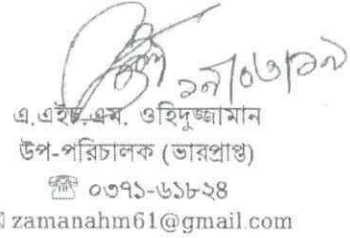 ১৭/০৬/১৯
এ.এইচ.এম. ওহিদুজ্জামান
উপ-পরিচালক (ভারপ্রাপ্ত)
০৩৭১-৬১৮২৪
zamanahm61@gmail.com